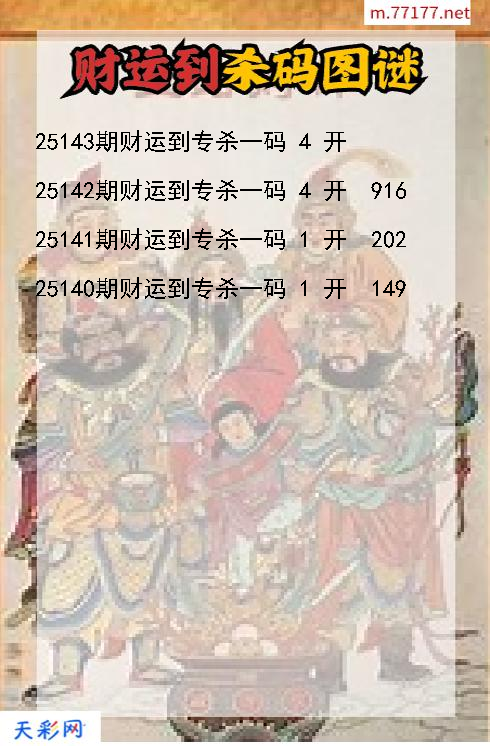 m.77177.net
财运到杀码图谜
25143期财运到专杀一码 4 开
25142期财运到专杀一码 4 开 916
25141期财运到专杀一码 1 开 202
25140期财运到专杀一码 1 开 149
天彩网